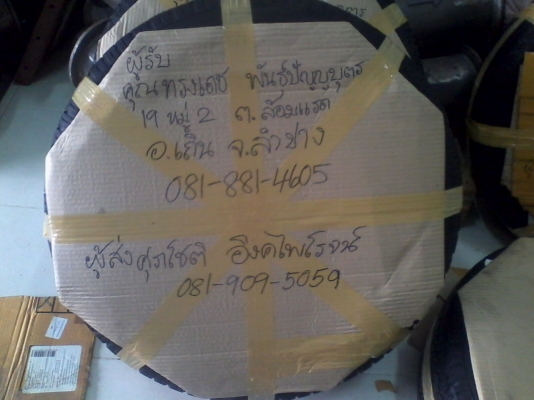 ผู้รับ
คุณทรงเดช พันธุ์ปัญญบุตร
19 หมู่ 2 ต.ล้อมแรด
อ.เถิน จ.ลำปาง
081-881-4605
ผู้ส่ง ศุภโชติ อึงคไพโรจน์
081-909-5059